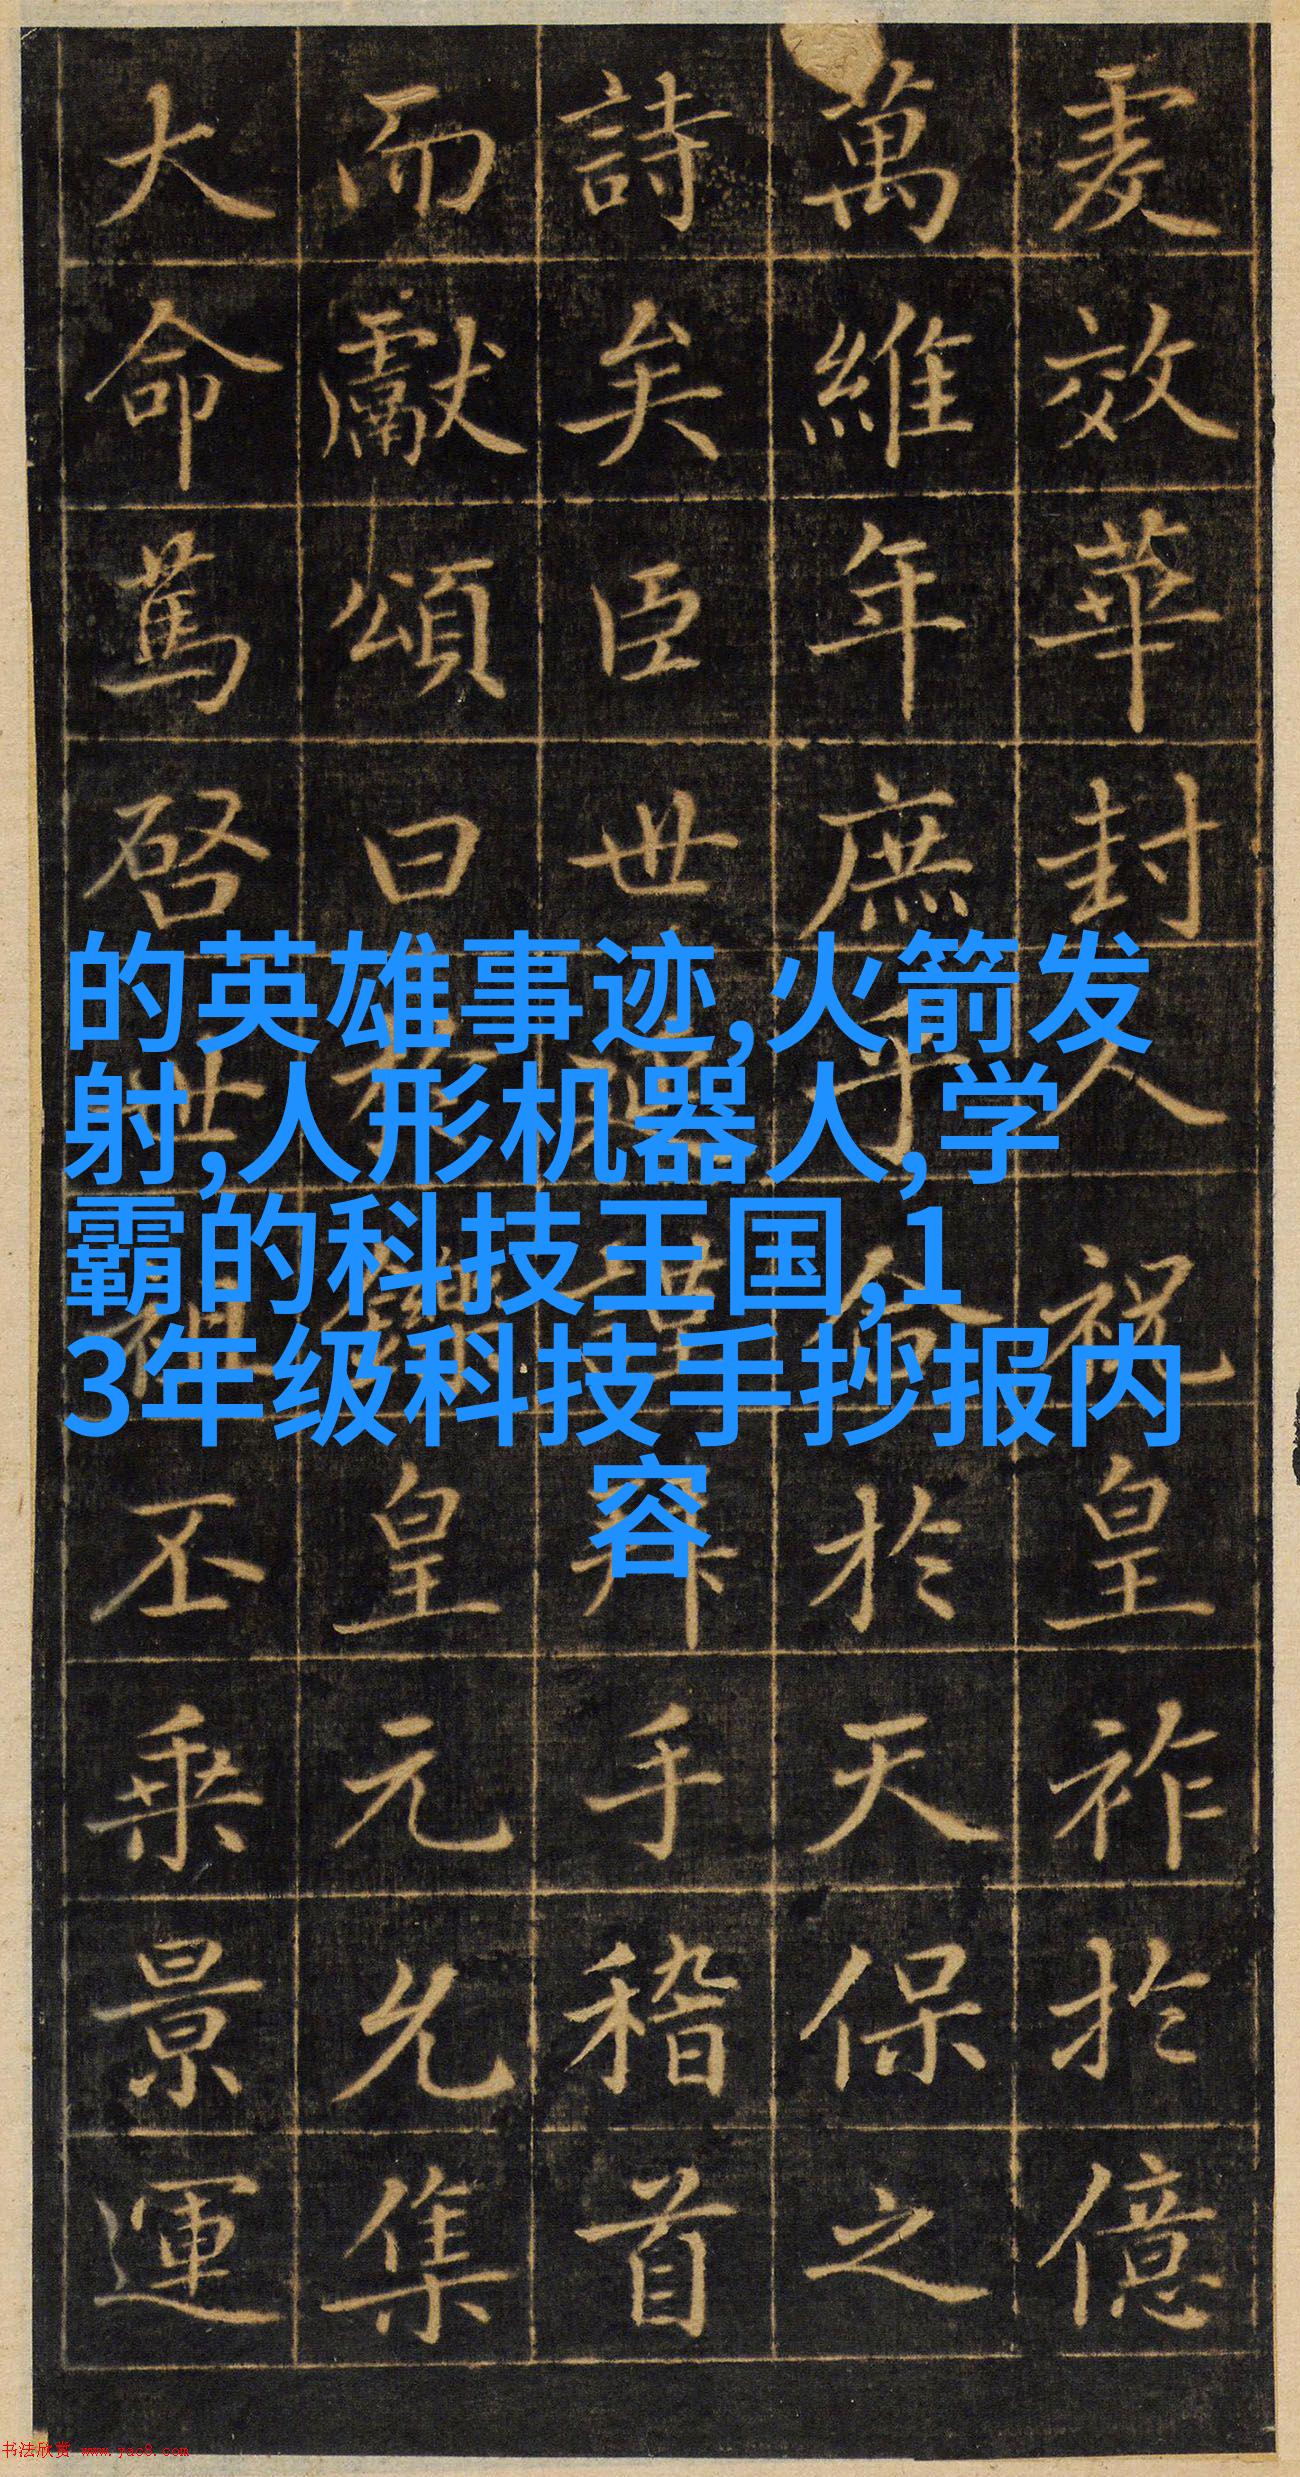 爰效華封人祝皇祚於億
萬維年庶乎合於天保之
詩矣臣世延謹拜手稽首
而獻頌曰於鑠皇元允集
大命篤啓世祖丕乘景運
的英雄事迹,火箭发
射,人形机器人,学
霸的科技王国,1
3年级科技手抄报内
容
书法欣赏 www.yac8.com